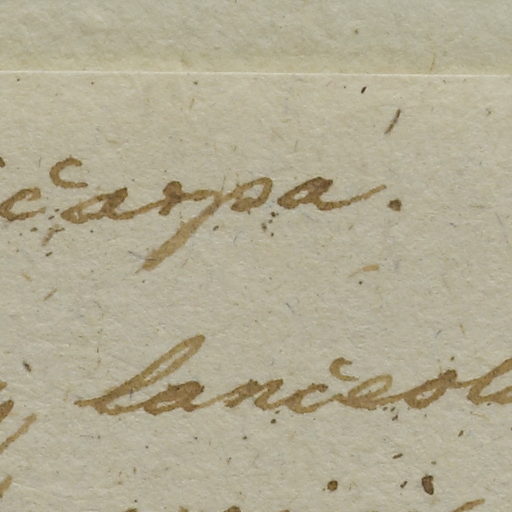 carpa.
lanceol